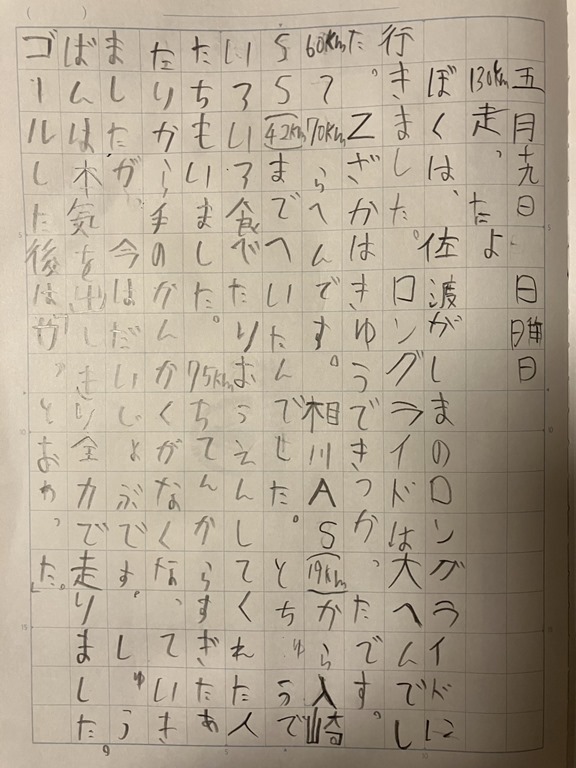 五月十九日　日曜日
130km走ったよ
ぼくは、佐渡がしまのロングライドに
行きました。ロングライドは大へんでし
た。Zざかはきゅうできつかったです。
60kmて70kmらへんです。相川AS(19km)から入崎
55(42km)までへいたんでした。とちゅうで
いろいろ食べたりおうえんしてくれた人
たちもいました。75kmちてんからすぎたあ
たりから、手のかんかくがなくなっていき
ましたが、今はだいじょぶです。しゅう
ばんは本気を出しきり全力で走りました
ゴールした後は とおわった。
9